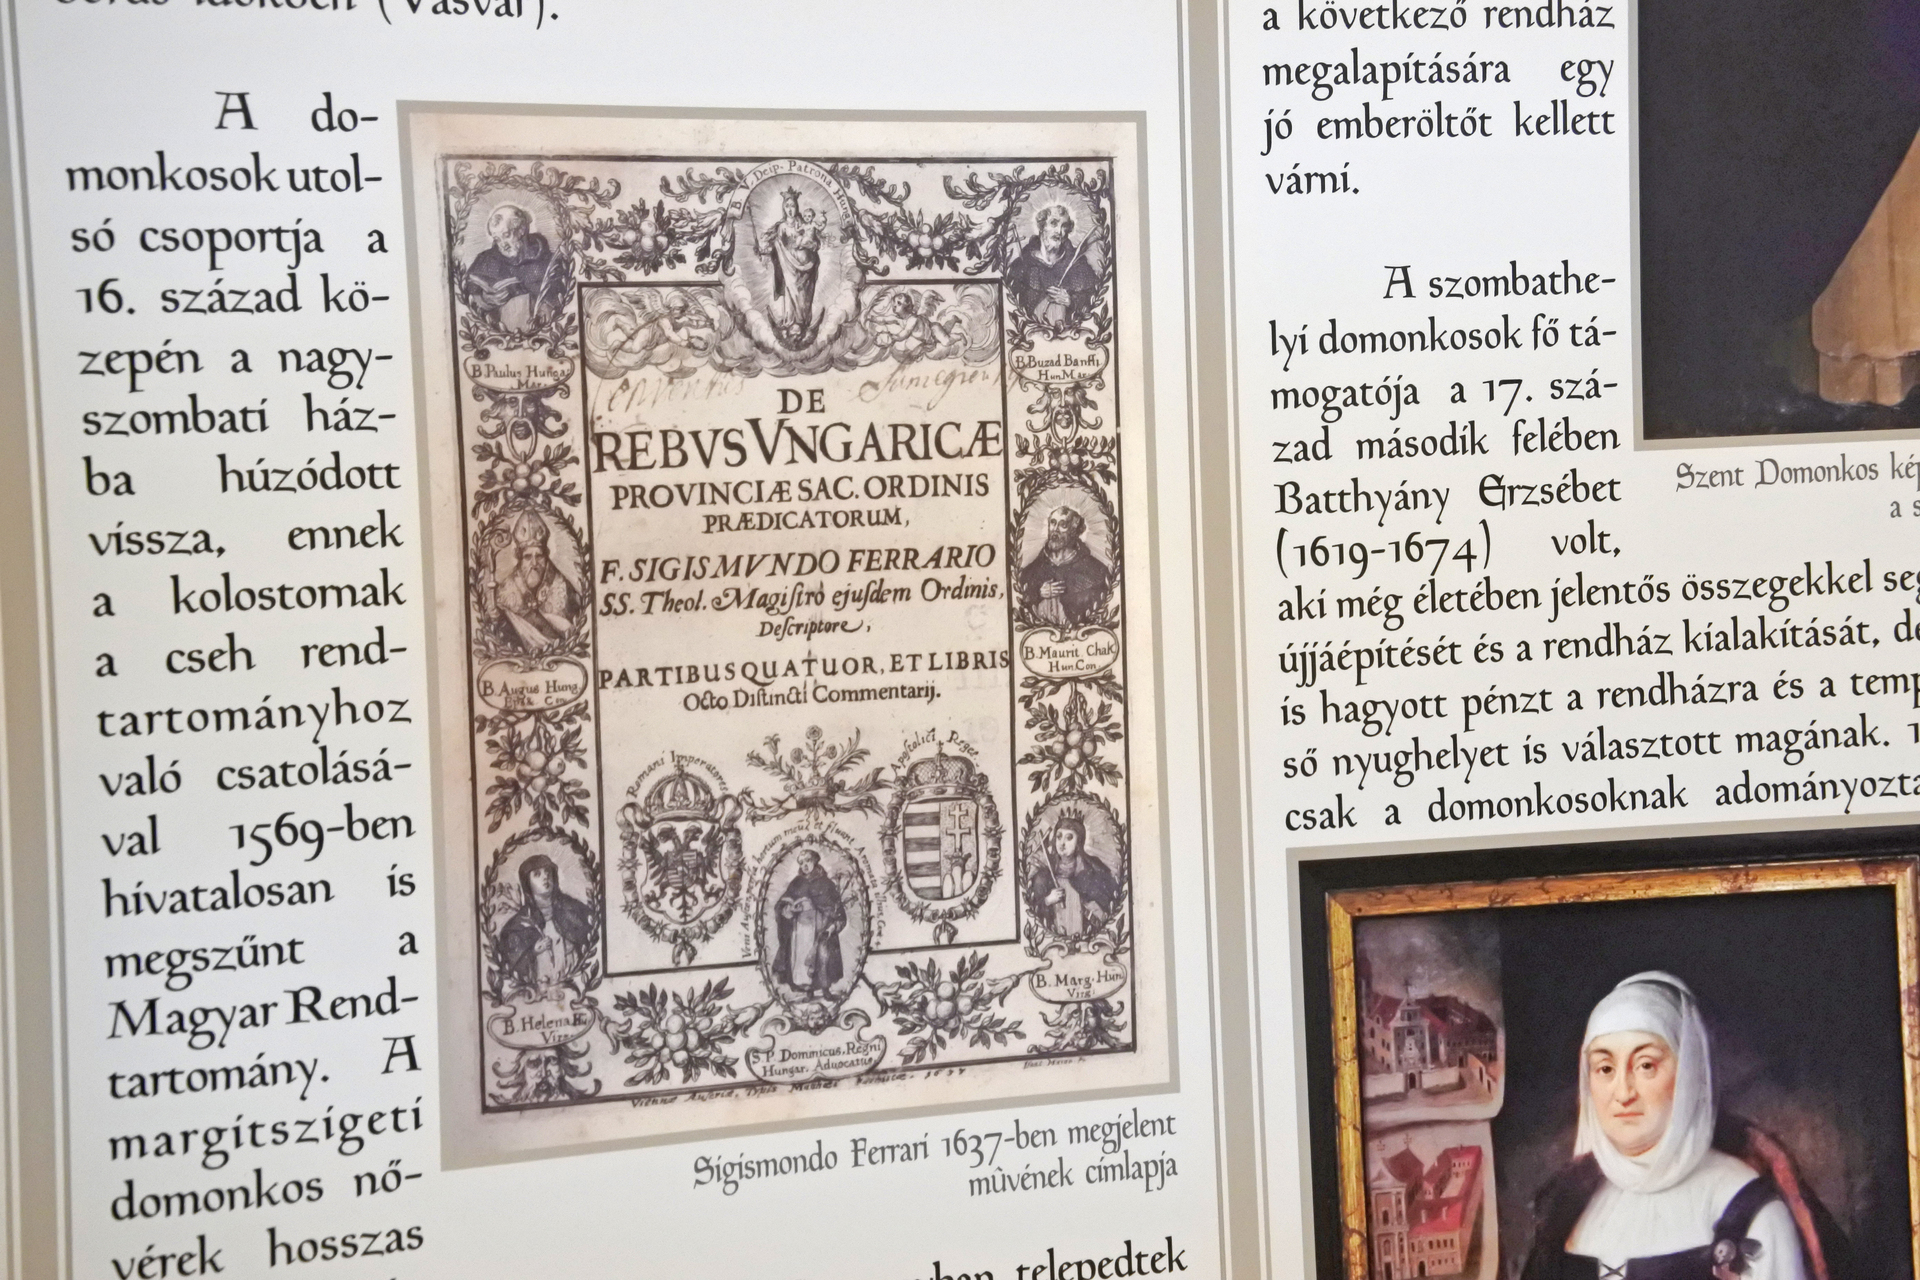 (Vasvár).
A do-
monkosok utol-
só csoportja a
16. század kö-
zepén a nagy-
szombati ház-
ba húzódott
vissza, ennek
a kolostornak
a cseh rend-
tartományhoz
való csatolásá-
val 1569-ben
hivatalosan is
megszűnt a
Magyar Rend-
tartomány. A
margitszigeti
domonkos nő-
vérek hosszas
B. V. Deip. Patrona Hung.
B. Paulus Hunga.
Mar.
B. Buzad Banffi.
Hun. Mar.
Conventus
DE
REBVS VNGARICÆ
PROVINCIÆ SAC. ORDINIS
PRÆDICATORUM,
F. SIGISMVNDO FERRARIO
SS. Theol. Magiſtro ejuſdem Ordinis,
Deſcriptore,
PARTIBUS QUATUOR, ET LIBRIS
Octo Diſtincti Commentarij.
B. Augus. Hung.
B. Maurit. Chak
Hun. Con.
Romani Imperatores
Apostolici Reges
B. Helena
Virg.
B. Marg. Hun.
Virg.
S. P. Dominicus, Regni
Hungar. Aduocatus
Viennæ Austriæ, Typis Matthæi 1637
Sigismondo Ferrari 1637-ben megjelent
mûvének címlapja
telepedtek
a következő rendház
megalapítására egy
jó emberöltőt kellett
várni.
A szombathe-
lyi domonkosok fő tá-
mogatója a 17. szá-
zad második felében
Batthyány Erzsébet
(1619-1674) volt,
aki még életében jelentős összegekkel
újjáépítését és a rendház kialakítását,
is hagyott pénzt a rendházra és a
ső nyughelyet is választott magának.
csak a domonkosoknak
Szent Domonkos
a